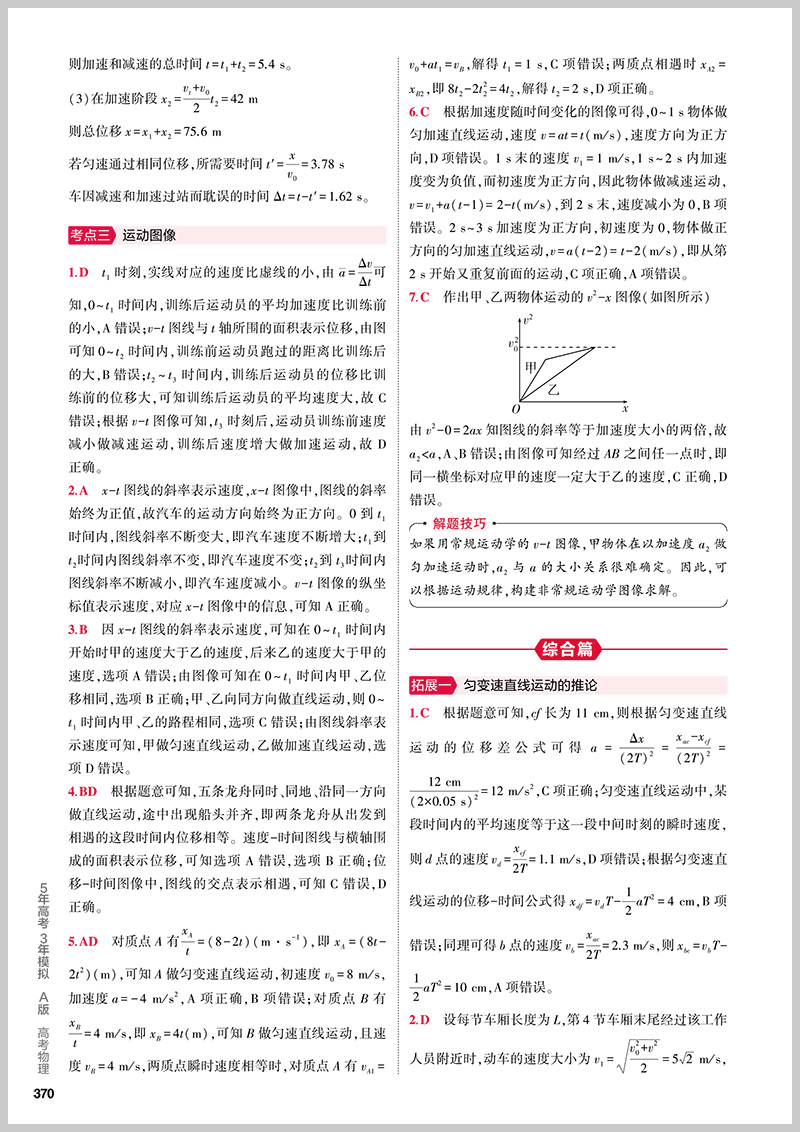 则加速和减速的总时间 t=t₁+t₂=5.4 s。
(3)在加速阶段 x₂=(vₜ+v₀)/2 t₂=42 m
则总位移 x=x₁+x₂=75.6 m
若匀速通过相同位移,所需要时间 t′=x/v₀=3.78 s
车因减速和加速过站而耽误的时间 Δt=t-t′=1.62 s。
考点三 运动图像
1.D t₁ 时刻,实线对应的速度比虚线的小,由 a̅=Δv/Δt可
知,0~t₁ 时间内,训练后运动员的平均加速度比训练前
的小,A 错误;v-t 图线与 t 轴所围的面积表示位移,由图
可知 0~t₂ 时间内,训练前运动员跑过的距离比训练后
的大,B 错误;t₂~t₃ 时间内,训练后运动员的位移比训
练前的位移大,可知训练后运动员的平均速度大,故 C
错误;根据 v-t 图像可知,t₃ 时刻后,运动员训练前速度
减小做减速运动,训练后速度增大做加速运动,故 D
正确。
2.A x-t 图线的斜率表示速度,x-t 图像中,图线的斜率
始终为正值,故汽车的运动方向始终为正方向。0 到 t₁
时间内,图线斜率不断变大,即汽车速度不断增大;t₁到
t₂时间内图线斜率不变,即汽车速度不变;t₂到 t₃时间内
图线斜率不断减小,即汽车速度减小。v-t 图像的纵坐
标值表示速度,对应 x-t 图像中的信息,可知 A 正确。
3.B 因 x-t 图线的斜率表示速度,可知在 0~t₁ 时间内
开始时甲的速度大于乙的速度,后来乙的速度大于甲的
速度,选项 A 错误;由图像可知在 0~t₁ 时间内甲、乙位
移相同,选项 B 正确;甲、乙向同方向做直线运动,则 0~
t₁ 时间内甲、乙的路程相同,选项 C 错误;由图线斜率表
示速度可知,甲做匀速直线运动,乙做加速直线运动,选
项 D 错误。
4.BD 根据题意可知,五条龙舟同时、同地、沿同一方向
做直线运动,途中出现船头并齐,即两条龙舟从出发到
相遇的这段时间内位移相等。速度-时间图线与横轴围
成的面积表示位移,可知选项 A 错误,选项 B 正确;位
移-时间图像中,图线的交点表示相遇,可知 C 错误,D
正确。
5.AD 对质点 A 有x_A/t=(8-2t)(m·s⁻¹),即 x_A=(8t-
2t²)(m),可知 A 做匀变速直线运动,初速度 v₀=8 m/s,
加速度 a=-4 m/s²,A 项正确,B 项错误;对质点 B 有
x_B/t=4 m/s,即 x_B=4t(m),可知 B 做匀速直线运动,且速
度 v_B=4 m/s,两质点瞬时速度相等时,对质点 A 有 v_A1=
v₀+at₁=v_B,解得 t₁=1 s,C 项错误;两质点相遇时 x_A2=
x_B2,即 8t₂-2t₂²=4t₂,解得 t₂=2 s,D 项正确。
6.C 根据加速度随时间变化的图像可得,0~1 s 物体做
匀加速直线运动,速度 v=at=t(m/s),速度方向为正方
向,D 项错误。1 s 末的速度 v₁=1 m/s,1 s~2 s 内加速
度变为负值,而初速度为正方向,因此物体做减速运动,
v=v₁+a(t-1)=2-t(m/s),到 2 s 末,速度减小为 0,B 项
错误。2 s~3 s 加速度为正方向,初速度为 0,物体做正
方向的匀加速直线运动,v=a(t-2)=t-2(m/s),即从第
2 s 开始又重复前面的运动,C 项正确,A 项错误。
7.C 作出甲、乙两物体运动的 v²-x 图像(如图所示)
v²
v₀²
甲
乙
O x
由 v²-0=2ax 知图线的斜率等于加速度大小的两倍,故
a₂<a,A、B 错误;由图像可知经过 AB 之间任一点时,即
同一横坐标对应甲的速度一定大于乙的速度,C 正确,D
错误。
解题技巧
如果用常规运动学的 v-t 图像,甲物体在以加速度 a₂ 做
匀加速运动时,a₂ 与 a 的大小关系很难确定。因此,可
以根据运动规律,构建非常规运动学图像求解。
综合篇
拓展一 匀变速直线运动的推论
1.C 根据题意可知,cf 长为 11 cm,则根据匀变速直线
运动的位移差公式可得 a=Δx/(2T)²=(x_ac-x_cf)/(2T)²=
12 cm/(2×0.05 s)²=12 m/s²,C 项正确;匀变速直线运动中,某
段时间内的平均速度等于这一段中间时刻的瞬时速度,
则 d 点的速度 v_d=x_cf/2T=1.1 m/s,D 项错误;根据匀变速直
线运动的位移-时间公式得 x_df=v_dT-1/2 aT²=4 cm,B 项
错误;同理可得 b 点的速度 v_b=x_ac/2T=2.3 m/s,则 x_bc=v_bT-
1/2 aT²=10 cm,A 项错误。
2.D 设每节车厢长度为 L,第 4 节车厢末尾经过该工作
人员附近时,动车的速度大小为 v₁=√((v₀²+v²)/2)=5√2 m/s,
5年高考 3年模拟 A版 高考物理
370